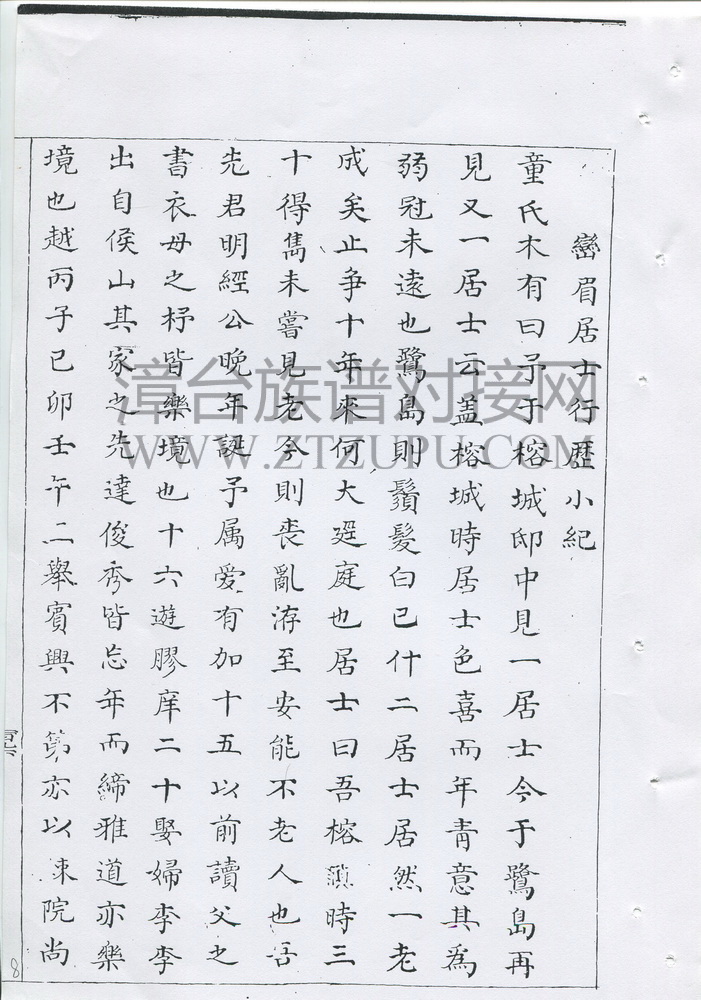 巒眉居士行歷小紀
童氏木有曰予于榕城邸中見一居士今于鷺島再
見又一居士云盖榕城時居士色喜而年青意其為
弱冠未遠也鷺島則鬚髮白已什二居士居然一老
成矣止争十年來何大逕庭也居士曰吾榕滇時三
十得雋未嘗見老今則喪亂洊至安能不老人也吾
先君明經公晚年誕予属爱有加十五以前讀父之
書衣母之杼皆樂境也十六遊膠庠二十娶婦李李
出自侯山其家之先達俊秀皆忘年而締雅道亦樂
境也越丙子己卯壬午二舉賓興不第亦以棘院尚
8
漳台族谱对接网
WWW.ZTZUPU.COM